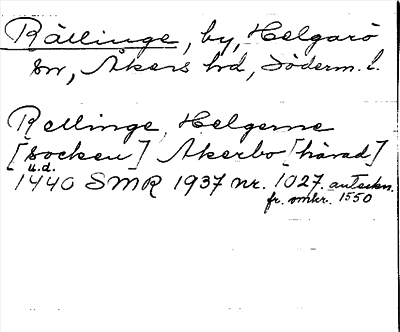 Rällinge, by, Helgarö
sn, Åkers hd, Söderm. l.
Rellinge, Helgerne
[socken] Akerbo [härad]
u.d.
1440 SMR 1937 nr. 1027. anteckn.
fr. omkr. 1550